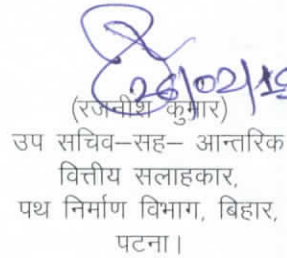 26/02/19
(रजनीश कुमार)
उप सचिव–सह– आन्तरिक
वित्तीय सलाहकार,
पथ निर्माण विभाग, बिहार,
पटना।